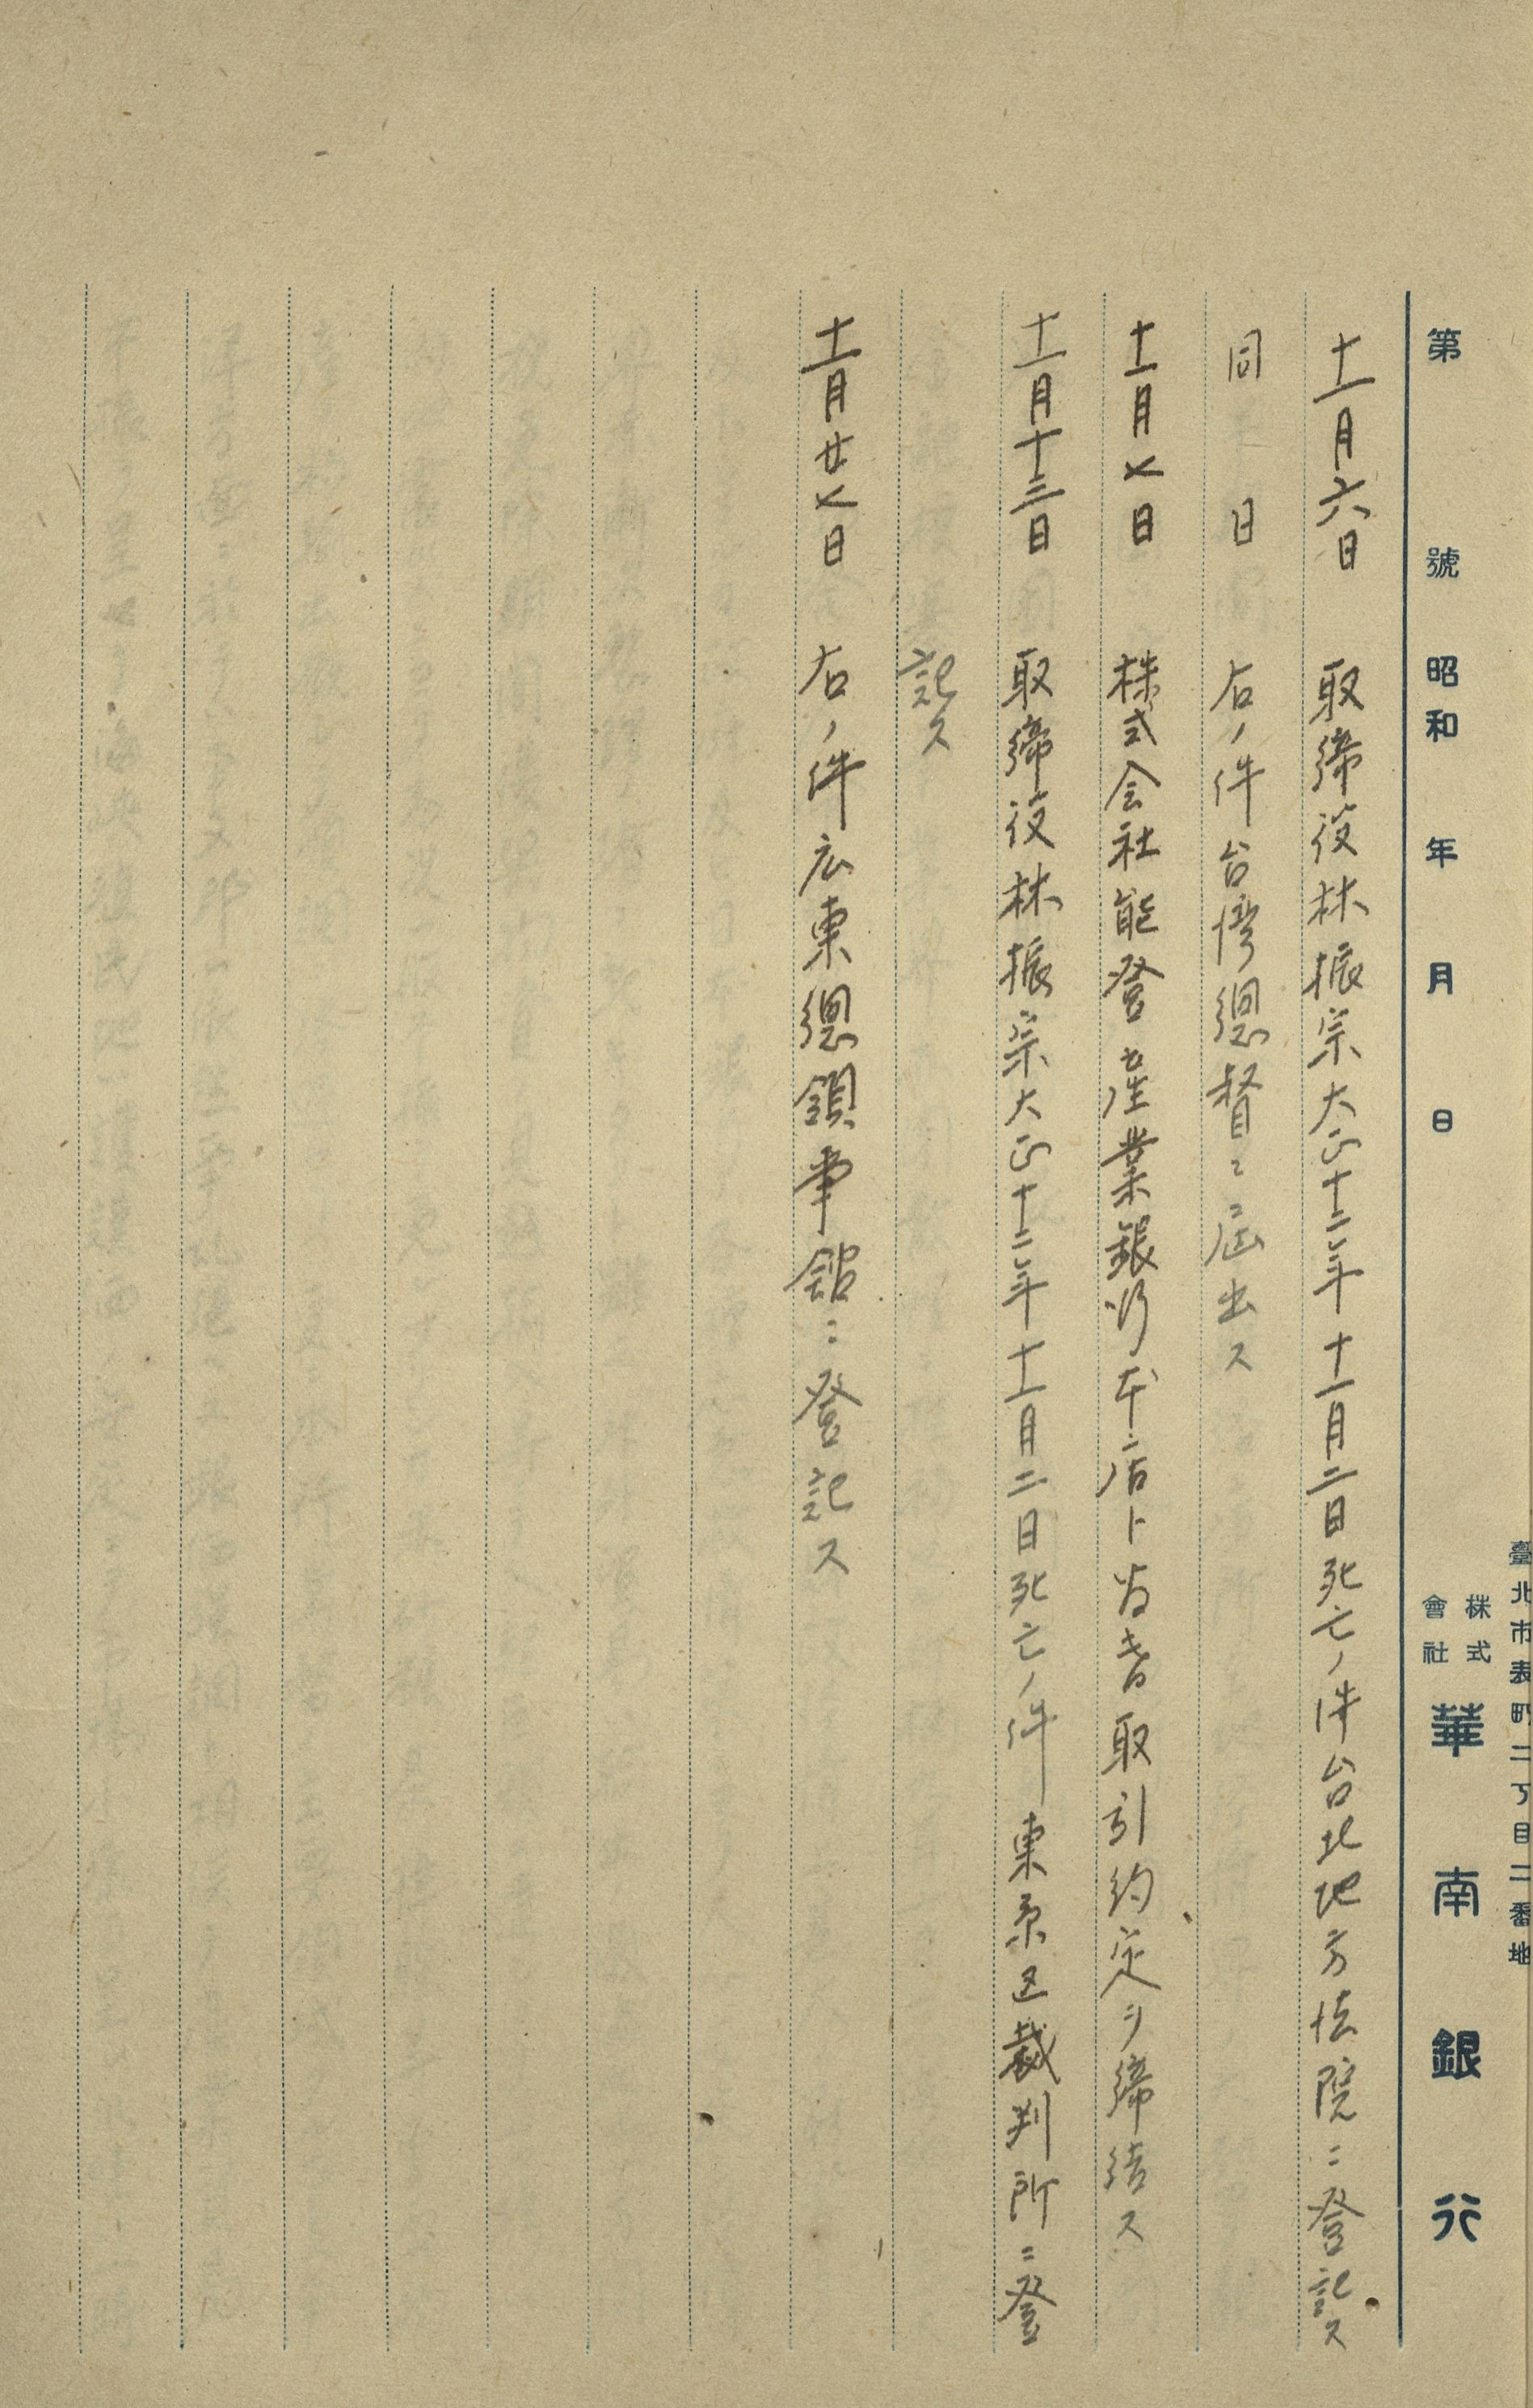 臺北市表町二丁目二番地
第 號 昭和 年 月 日 株式會社 華南銀行
十一月六日 取締役林振宗大正十二年十一月二日死亡ノ件台北地方法院ニ登記ス
同 日 右ノ件台湾總督ニ届出ス
十一月七日 株式会社能登産業銀行本店ト為替取引約定ヲ締結ス
十一月十三日 取締役林振宗大正十二年十一月二日死亡ノ件東京区裁判所ニ登
記ス
十一月廿七日 右ノ件広東總領事館ニ登記ス